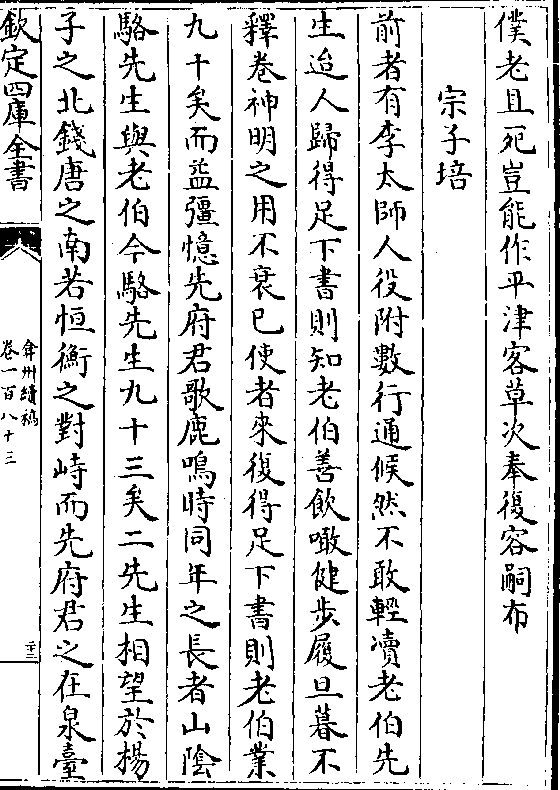 僕老且死豈能作平津客草次奉復容嗣布
宗子培
前者有李太師人役附數行通候然不敢輕凟老伯先
生迨人歸得足下書則知老伯善飲噉健步履旦暮不
釋卷神明之用不衰已使者來復得足下書則老伯業
九十矣而益彊憶先府君歌鹿鳴時同年之長者山陰
駱先生與老伯今駱先生九十三矣二先生相望於揚
子之北錢唐之南若恒衡之對峙而先府君之在泉臺
欽定四庫全書
弇州續稿
卷一百八十三
二十三